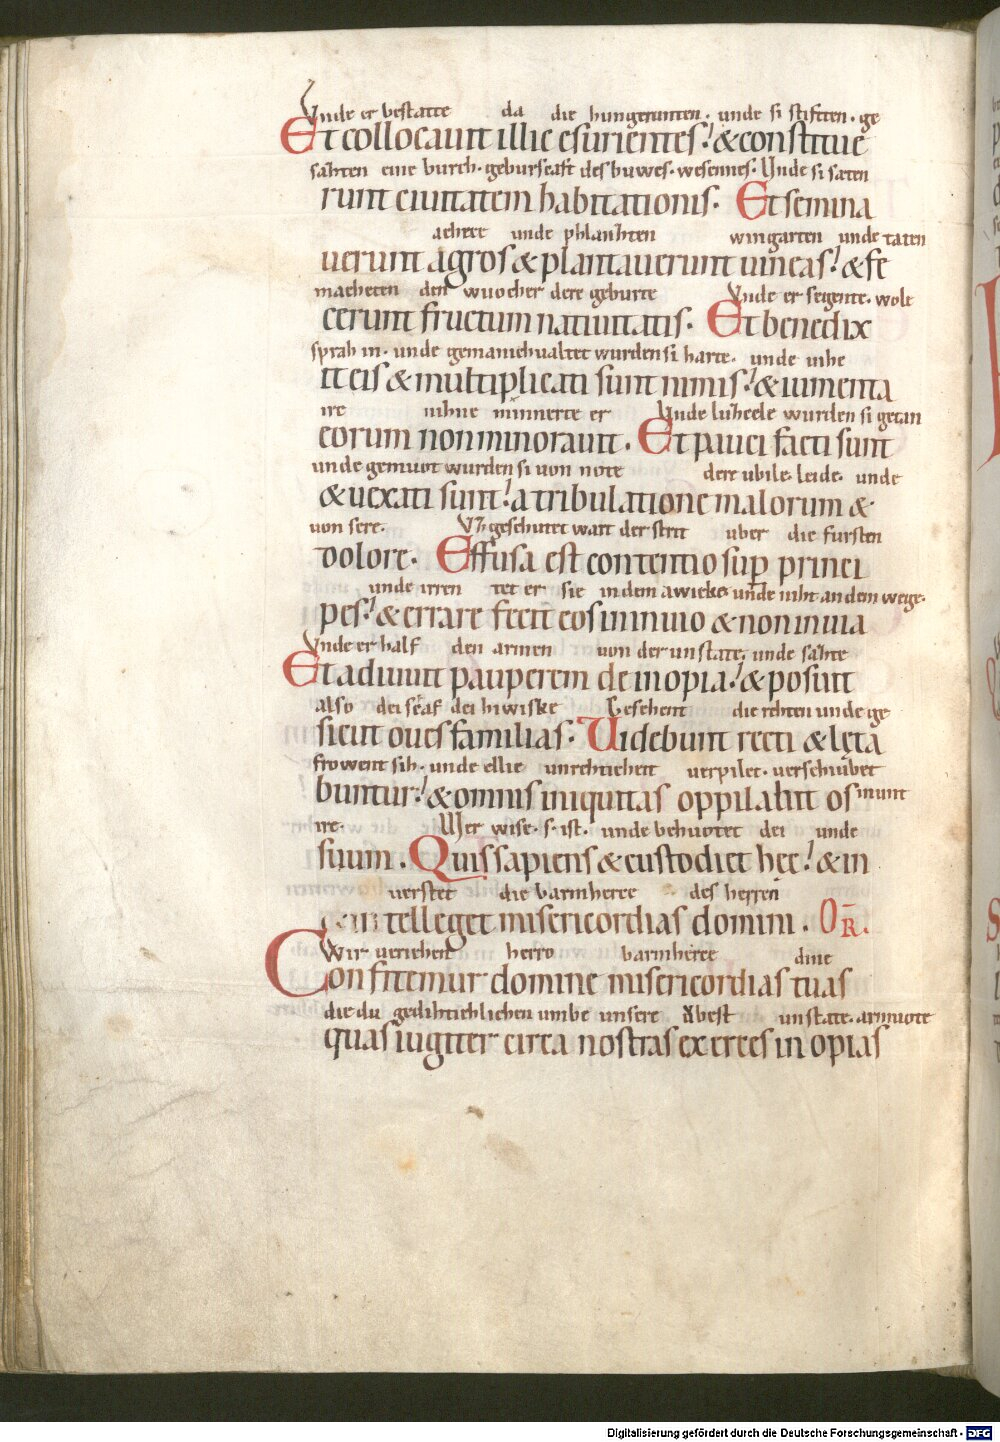 Vnde er bestatte da die hungerunten. unde si stiften. ge
Et collocauit illic esurientes! & constitue
sahten eine burch. geburscaft des buwes. wesennes. Unde si saten
runt ciuitatem habitationis. Et semina
achere unde phlanhten wingarten unde taten
uerunt agros & plantauerunt uineas! & fe
macheten den wuocher dere geburte Vnde er segente. wole
cerunt fructum natiuitatis. Et benedix
sprah in. unde gemanichualtet wurden si harte. unde uihe
it eis & multiplicati sunt nimis! & iumenta
ire niht ne minnerte er Unde luhcele wurden si getan
eorum non minorauit. Et pauci facti sunt
unde gemuot wurden si uon note dere ubile. leide. unde
& uexati sunt! a tribulatione malorum &
uon sere. Vz geschutet wart der strit uber die fursten
dolore. Effusa est contentio sup princi
unde irren tet er sie in dem awicke. unde niht an dem wege.
pes! & errare fecit eos in inuio & non in uia
Vnde er half den armen uon der unstate. unde sahte
Et adiuuit pauperem de inopia! & posuit
also dei scaf dei hiwiske Gesehent die rehten unde ge
sicut oues familias. Uidebunt recti & leta
frowent sih. unde ellie unrehticheit uerpilet. uerschubet
buntur! & omnis iniquitas oppilabit os
munt
ire. Wer wise. s. ist. unde behuotet dei unde
suum. Quis sapiens & custodiet hec! & in
uerstet die barmherce des herren
telleget misericordias domini. OR.
Wir ueriehent herro barmherce dine
Confitemur domine misericordias tuas
die du gedihtichlichen umbe unsere unstate. armuote
quas iugiter circa nostras exerces inopias
Digitalisierung gefördert durch die Deutsche Forschungsgemeinschaft - DFG